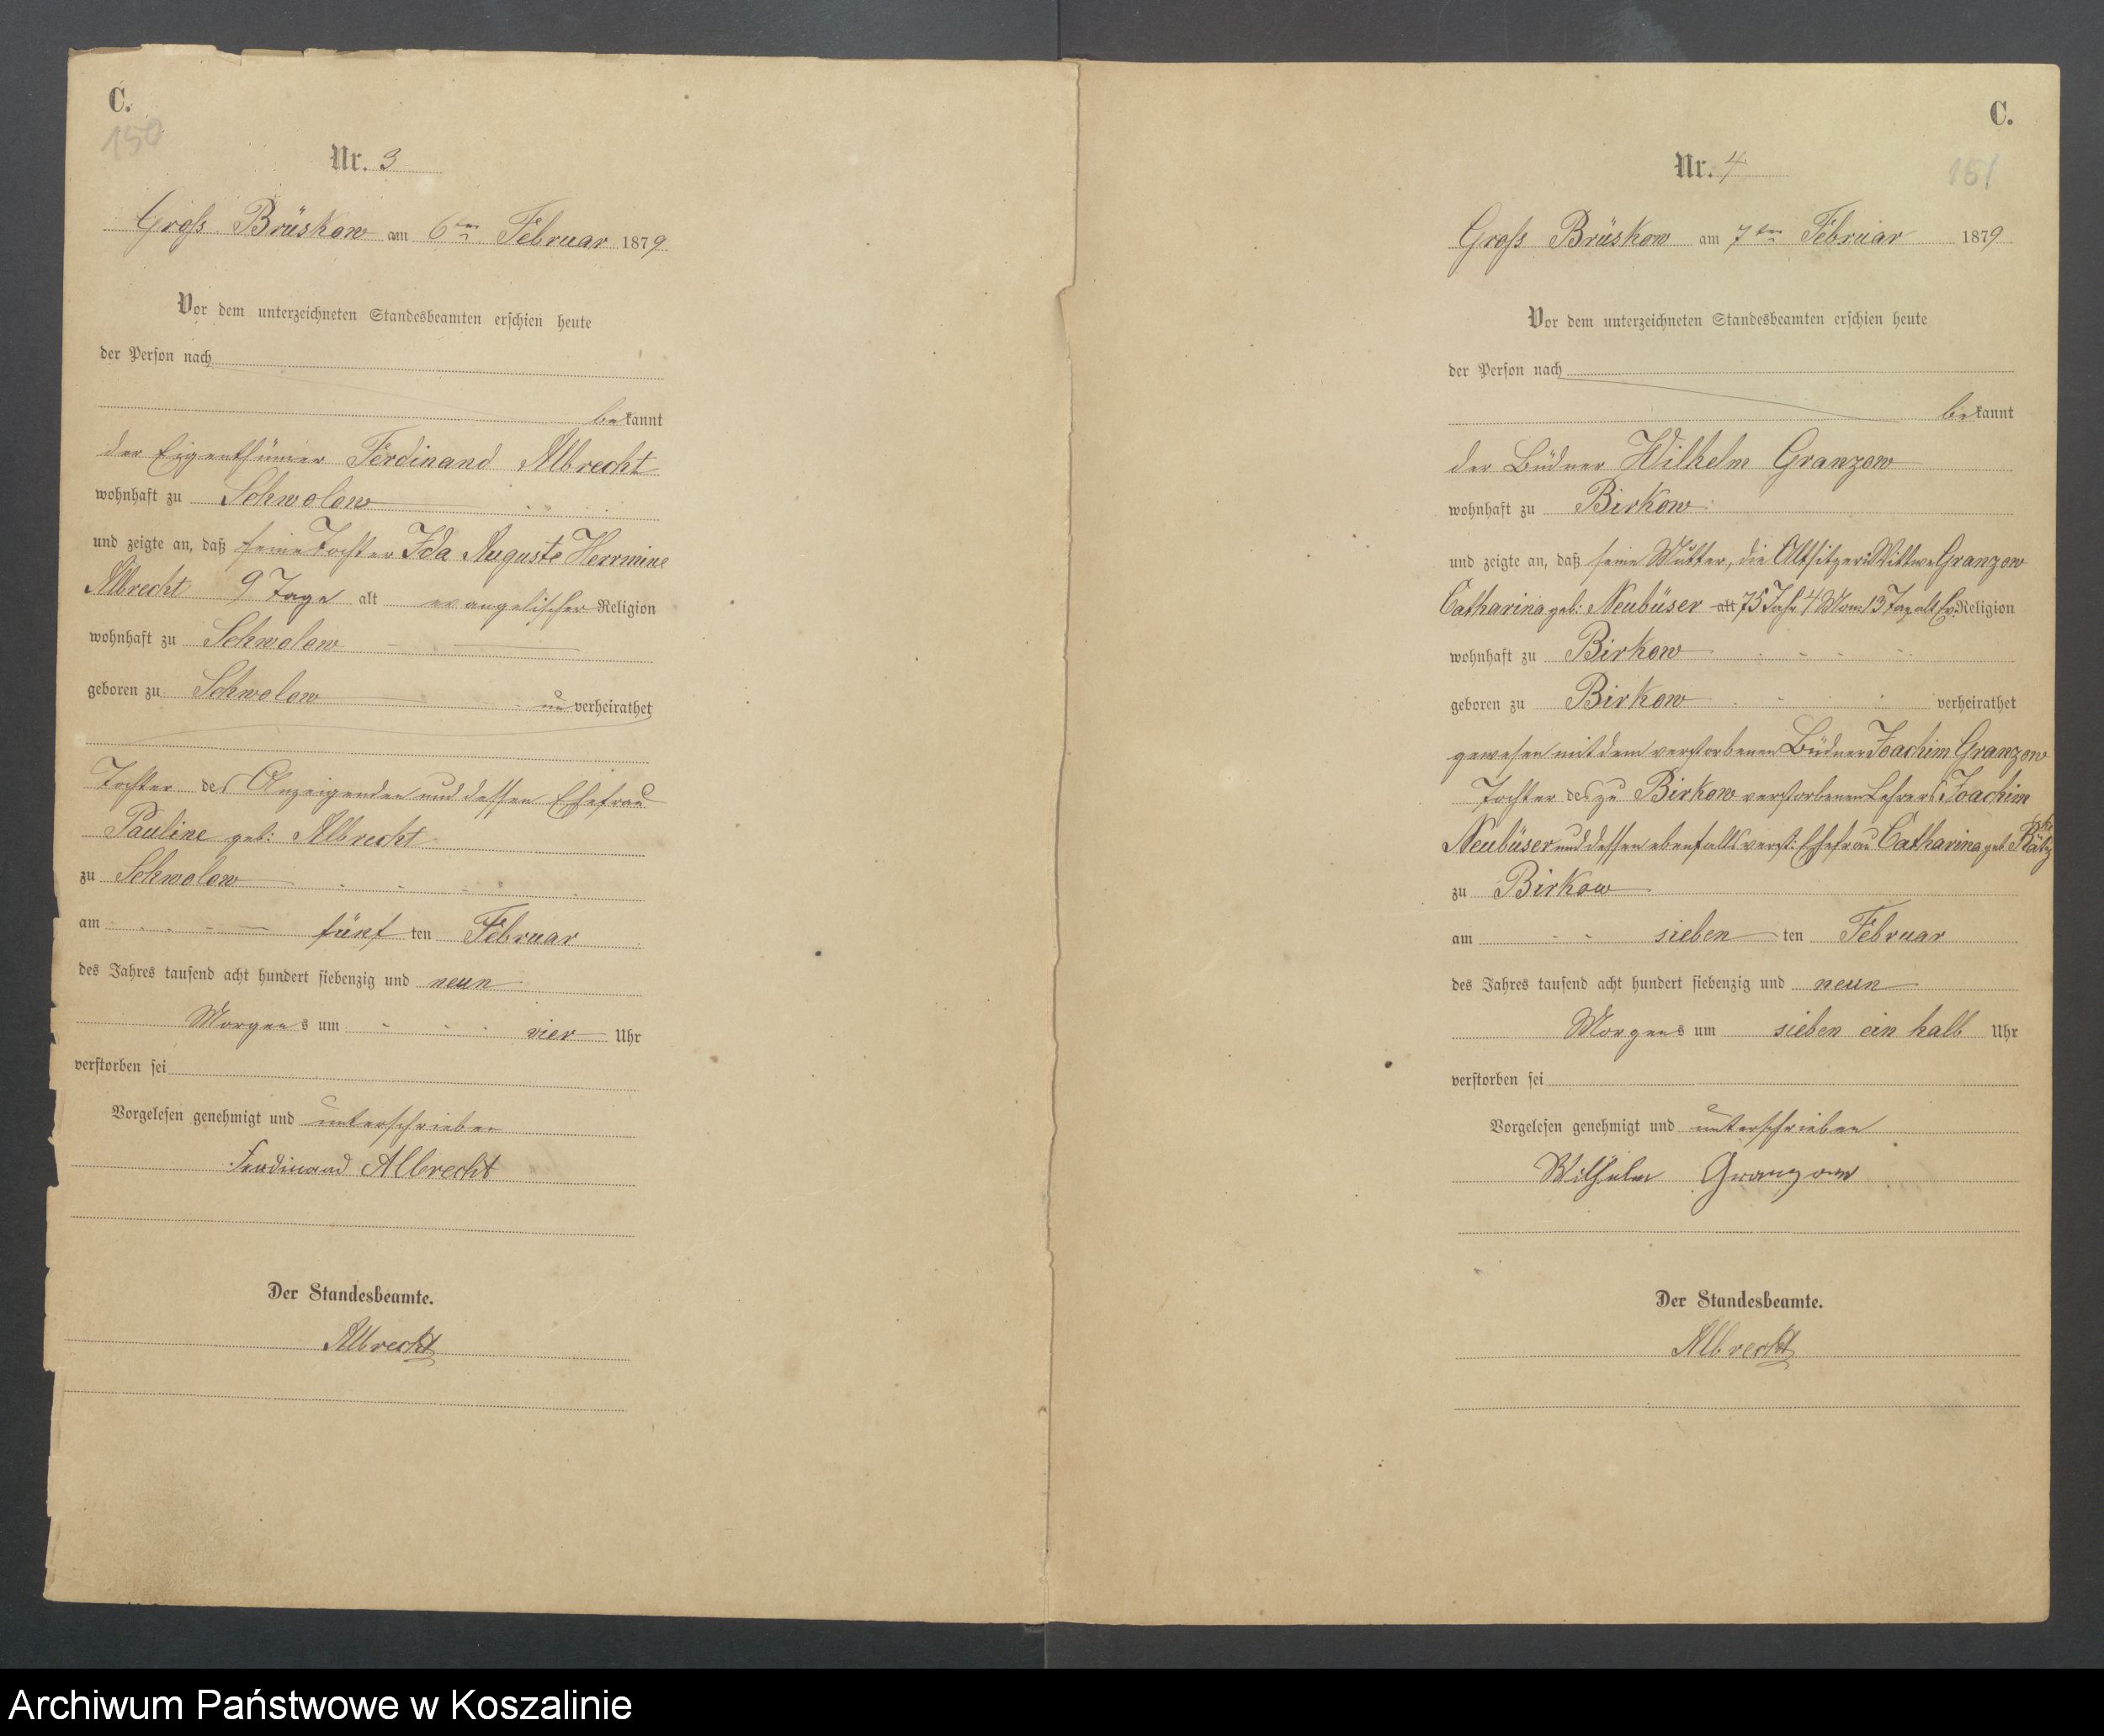 C.
150
Nr. 3
Groß Brüskow am 6ten Februar 1879
Vor dem unterzeichneten Standesbeamten erschien heute
der Person nach
bekannt
der Eigenthümer Ferdinand Albrecht
wohnhaft zu Schwolow
und zeigte an, daß seine Tochter Ida Auguste Herrmine
Albrecht 9 Tage alt evangelischer Religion
wohnhaft zu Schwolow
geboren zu Schwolow unverheirathet
Tochter des Anzeigenden und dessen Ehefrau
Pauline geb: Albrecht
zu Schwolow
am fünf ten Februar
des Jahres tausend acht hundert siebenzig und neun
Morgens um vier Uhr
verstorben sei
Vorgelesen genehmigt und unterschrieben
Ferdinand Albrecht
Der Standesbeamte.
Albrecht
C.
151
Nr. 4
Groß Brüskow am 7ten Februar 1879
Vor dem unterzeichneten Standesbeamten erschien heute
der Person nach
bekannt
der Büdner Wilhelm Granzow
wohnhaft zu Birkow
und zeigte an, daß seine Mutter, die Altsitzerin Wittwe Granzow
Catharina geb: Neubüser alt 75 Jahr 4 Mon 13 Tag alt Ev. Religion
wohnhaft zu Birkow
geboren zu Birkow verheirathet
gewesen mit dem verstorbenen Büdner Joachim Granzow
Tochter des zu Birkow verstorbenen Lehrers Joachim
Neubüser und dessen ebenfalls verst: Ehefrau Catharina geb.
zu Birkow
am sieben ten Februar
des Jahres tausend acht hundert siebenzig und neun
Morgens um sieben ein halb Uhr
verstorben sei
Vorgelesen genehmigt und unterschrieben
Wilhelm Granzow
Der Standesbeamte.
Albrecht
Archiwum Państwowe w Koszalinie